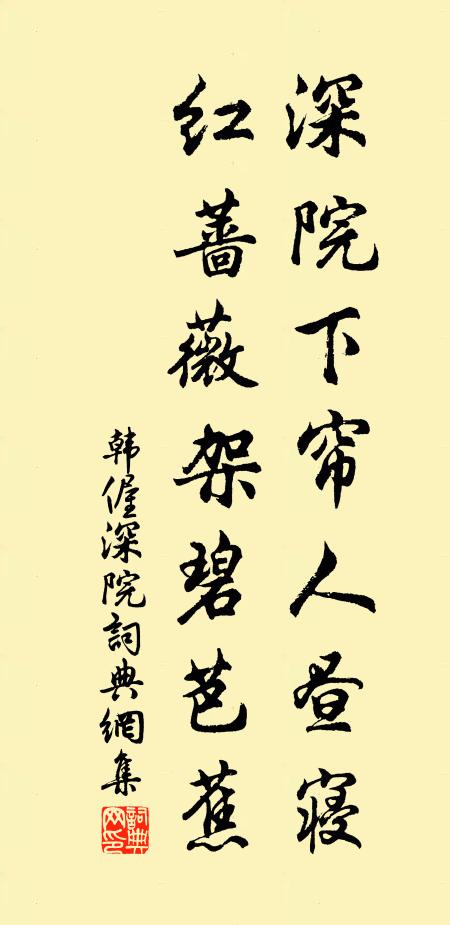 深院下帘人昼寝
红蔷薇架碧芭蕉
韩偓深院詞典網集
詞典網印